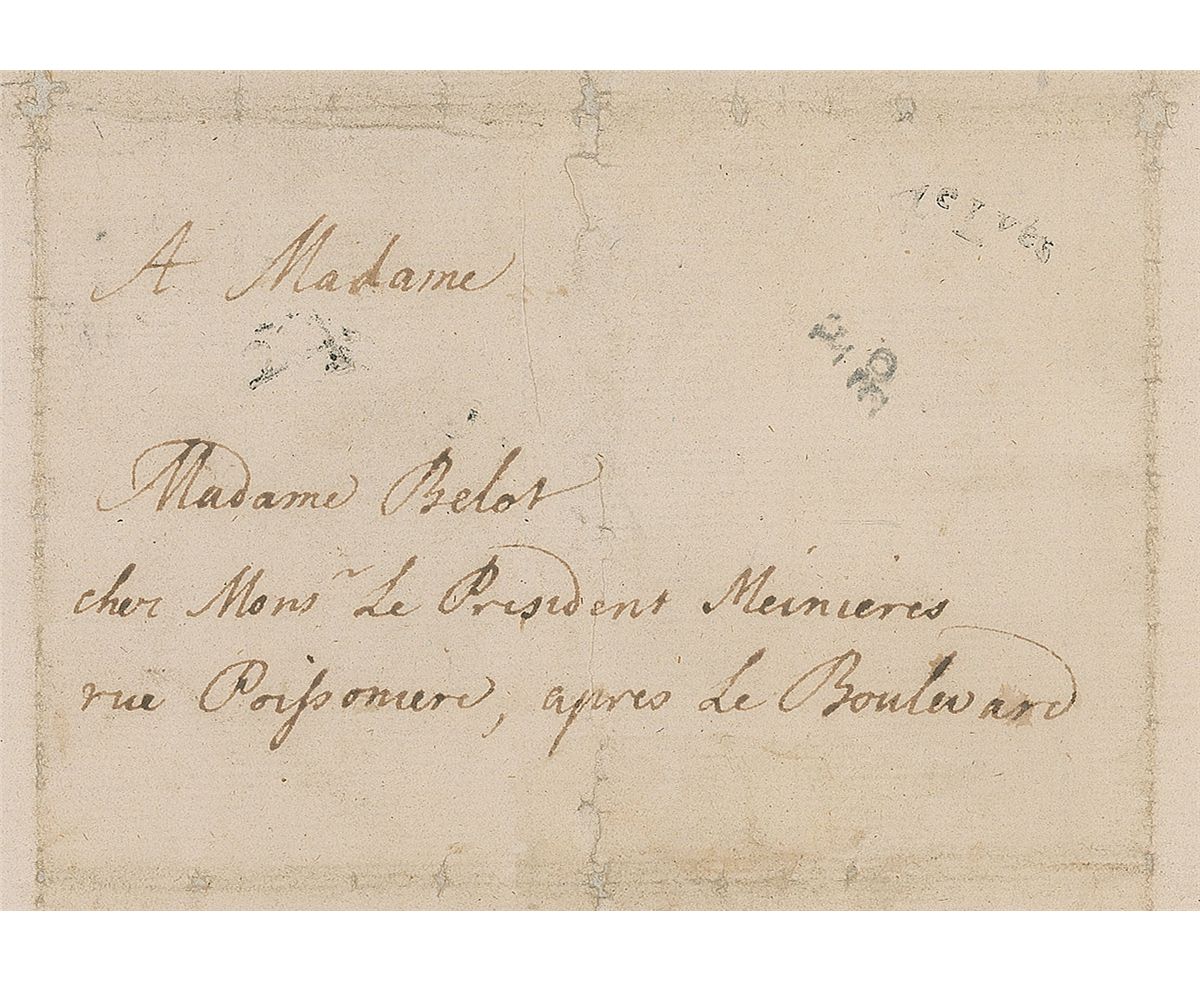 A Madame
Madame Belot
chez Monsr Le President Meinieres
rue Poissoniere, apres Le Boulevard